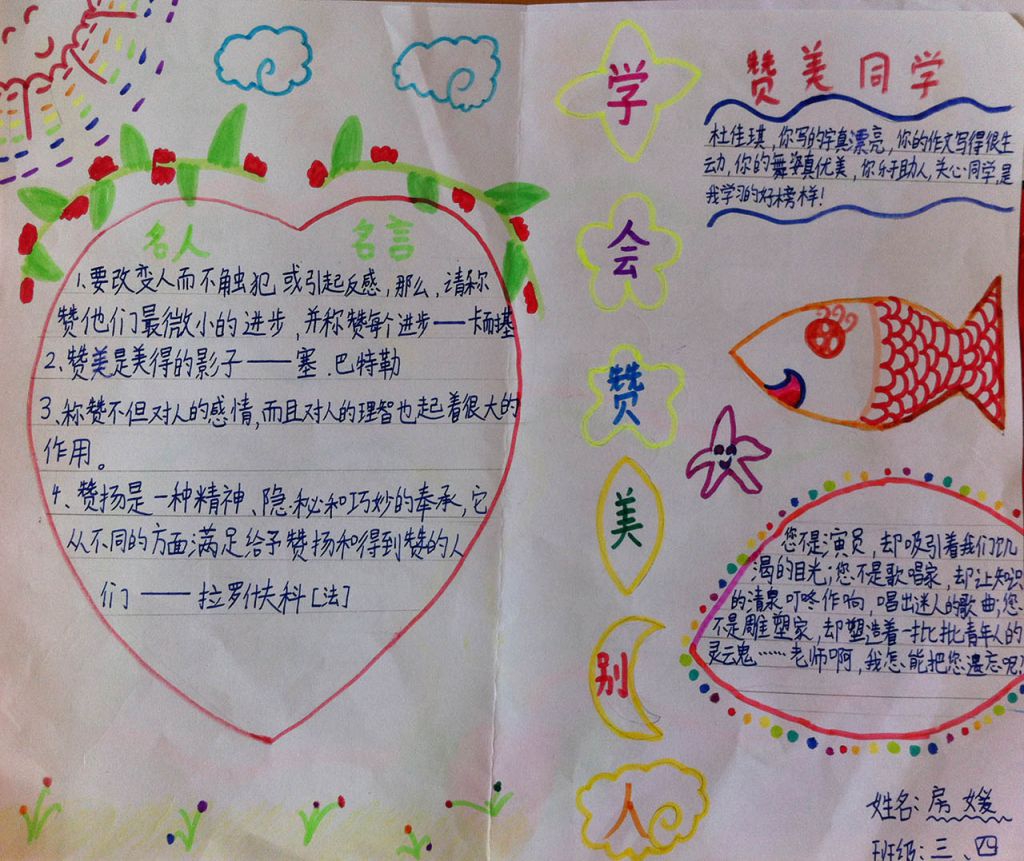 名人 名言
1.要改变人而不触犯或引起反感,那么,请称
赞他们最微小的进步,并称赞每个进步——卡耐基
2、赞美是美得的影子——塞.巴特勒
3、称赞不但对人的感情,而且对人的理智也起着很大的
作用。
4、赞扬是一种精神、隐秘和巧妙的奉承,它
从不同的方面满足给予赞扬和得到赞的人
们——拉罗什夫科[法]
学
会
赞
美
别
人
赞美同学
杜佳琪,你写的字真漂亮,你的作文写得很生
动,你的舞姿真优美,你乐于助人,关心同学,是
我学习的好榜样!
您不是演员,却吸引着我们饥
渴的目光;您不是歌唱家,却让知识
的清泉叮咚作响,唱出迷人的歌曲;您
不是雕塑家,却塑造着一批批青年人的
灵魂……老师啊,我怎能把您遗忘呢!
姓名:房媛
班级:三、四